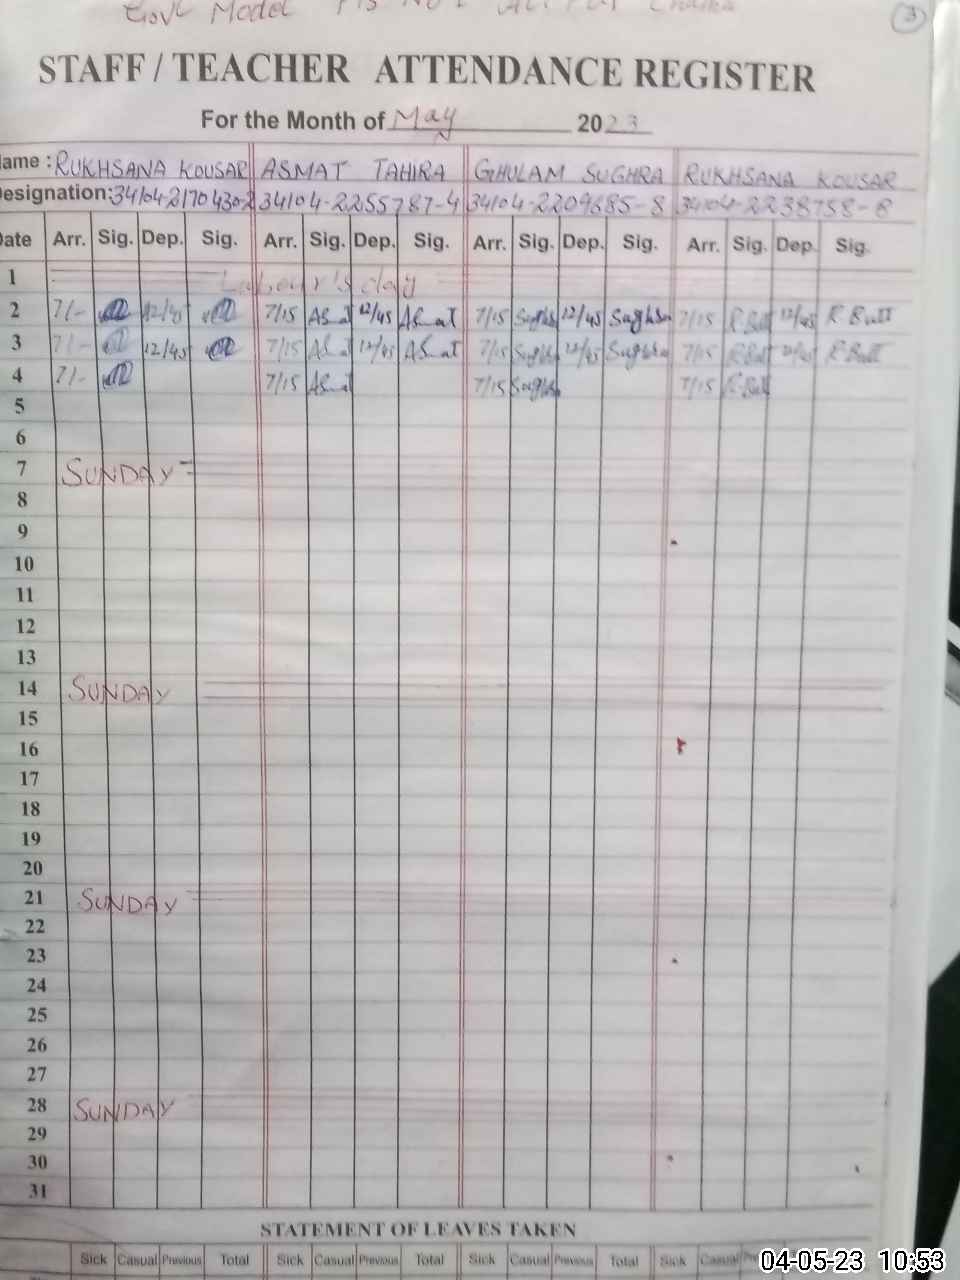 Govt Model P/S No
3
STAFF / TEACHER ATTENDANCE REGISTER
For the Month of May 2023
Name : RUKHSANA KOUSAR ASMAT TAHIRA GHULAM SUGHRA RUKHSANA KOUSAR
Designation: 34104-2170430-2 34104-2255787-4 34104-2209685-8 34104-2238758-8
Date Arr. Sig. Dep. Sig. Arr. Sig. Dep. Sig. Arr. Sig. Dep. Sig. Arr. Sig. Dep. Sig.
1 Labour's day
2 7/- 12/45 7/15 Asmat 12/45 Asmat 7/15 Sughra 12/45 Sughra 7/15 R.Butt 12/45 R Butt
3 7/- 12/45 7/15 Asmat 12/45 Asmat 7/15 Sughra 12/45 Sughra 7/15 R.Butt 12/45 R Butt
4 7/- 7/15 Asmat 7/15 Sughra 7/15 R.Butt
5
6
7 SUNDAY
8
9
10
11
12
13
14 SUNDAY
15
16
17
18
19
20
21 SUNDAY
22
23
24
25
26
27
28 SUNDAY
29
30
31
STATEMENT OF LEAVES TAKEN
Sick Casual Previous Total Sick Casual Previous Total Sick Casual Previous Total Sick Casual
04-05-23 10:53